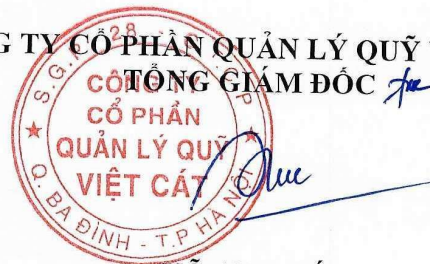 G TY CỔ PHẦN QUẢN LÝ QUỸ
TỔNG GIÁM ĐỐC
CÔNG TY
CỔ PHẦN
QUẢN LÝ QUỸ
VIỆT CÁT
Q. BA ĐÌNH - T.P HÀ NỘI